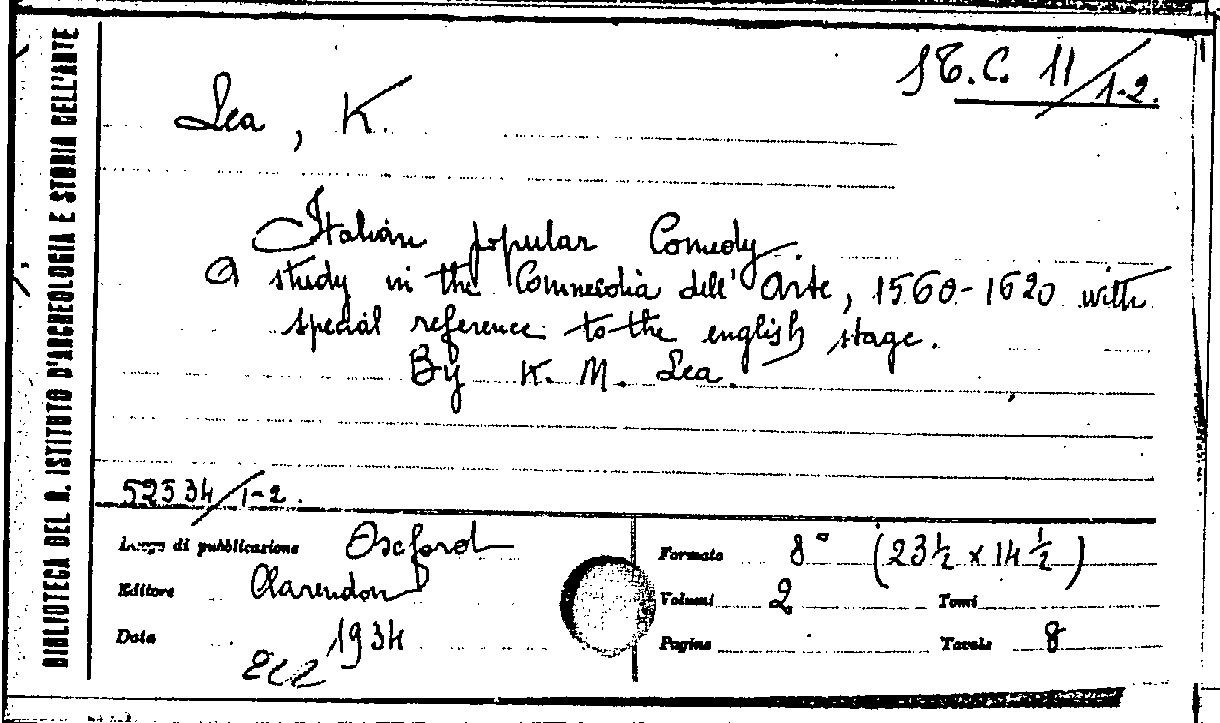 BIBLIOTECA DEL R. ISTITUTO D'ARCHEOLOGIA E STORIA DELL'ARTE
1-2.
Lea, K.
Italian popular Comedy.
A study in the Commedia dell'Arte, 1560-1620 with
special reference to the english stage.
By K. M. Lea.
52534/1-2.
Luogo di pubblicazione Oxford
Editore Clarendon
Data 1934
Formato 8° (23 ½ x 14 ½)
Volumi 2 Tomi
Pagine Tavole 8